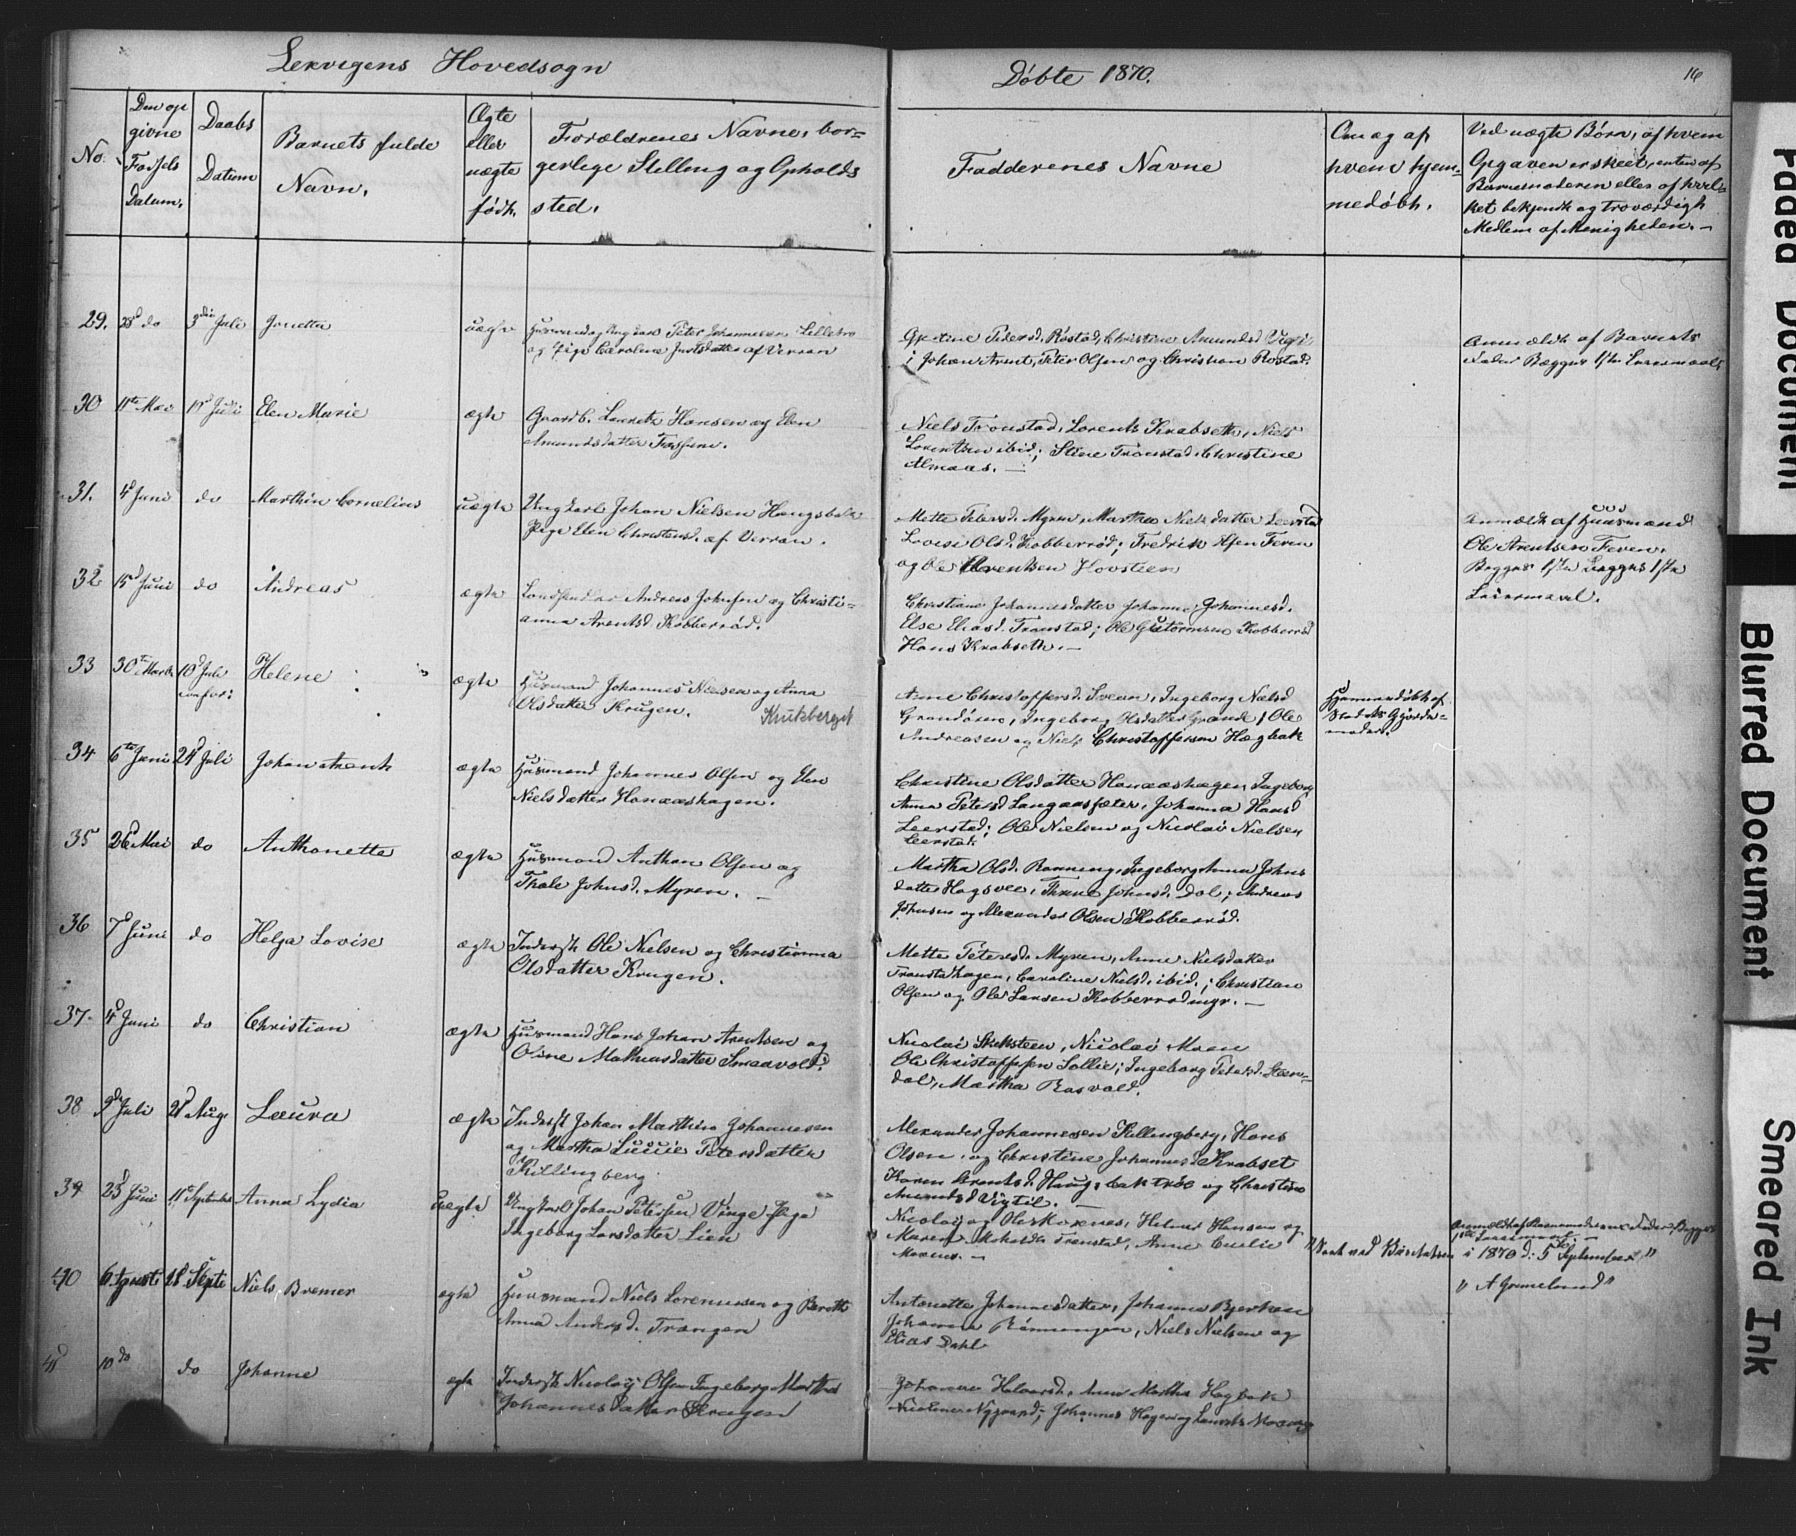 Lexvigens Hovedsogn
Døbte 1870.
16
No.
Den op
givne
Fødsels
Datum.
Daabs
Datum
Barnets fulde
Navn.
Ægte
eller
uægte
født.
Forældrenes Navne, bor=
gerlige Stilling og Opholds
sted.
Fadderenes Navne
Om og af
hvem hjem=
medøbt.
Ved uægte Børn, af hvem
Opgaven er skeet, enten af
Barnemoderen eller af hvil=
ket bekjendt og troværdigt
Medlem af Menigheden. —
29. 28d do 3die Juli Jonetta uægte
og Pige Caroline Justdatter af Verran
Petersd. Rostad, Christine Amundsd
Johan Arnt, Peter Olsen og Christian Rostad.
Anmeldt af Barnets
Fader Begges 1ste Leiermaal.
30 11te Mai 17d Juli Elen Marie ægte Gaardb. Lorentz Hansen og Elen
Amundsdatter
Niels Tronstad, Lorents Krabseth, Niels
Lorentsen ibid; Stine Tronstad, Christine
Almaas. —
31. 4d Juni do Marthin Cornelius uægte Ungkarl Johan Nielsen
Pige Elen Christensd. af Verran.
Mette Petersd. Myren, Martha Nielsdatter Leerstad
Lovise Olsd. Kobberrød; Fredrik Olsen Feren
og Ole Arentsen Hovsteen
Anmeldt af Huusmand
Ole Arentsen Feren.
Begges 1ste Begges 1ste
Leiermaal.
32 15d Juni do Andreas ægte Andreas Johnsen og Christi=
anna Arentsd. Kobberrød.
Christiane Johannesdatter Johanna Johannesd.
Else Eliasd. Tronstad; Ole Guttormsen Kobberrød
Hans Krabseth. —
33 30te Marts 10d Juli Helene ægte Husmand Johannes Nielsen og Anna
Olsdatter Krugen. Knutsberget
Anne Christoffersd. Sveen, Ingeborg Nielsd
Ingeborg Olsdatter Grande; Ole
Andreasen og Niels Christoffersen Hægbak
Hjemmedøbt af
moder.
34 6te Juni 24d Juli Johan Arent ægte Husmand Johannes Olsen og Elen
Nielsdatter Hanaashagen.
Christine Olsdatter Hanaashagen, Ingeborg
Anna Petersd Langaassæter, Johanna Hansd
Leerstad; Ole Nielsen og Nicolai Nielsen
Leerstad.
35 26d Mai do Anthonette ægte Husmand Anthon Olsen og
Thale Johnsd. Myren. —
Martha Olsd. Rønning, Ingeborg Anna Johns
datter Johnsd. Dal; Andreas
Johnsen og Alexander Olsen Kobberrød.
36 7d Juni do Helga Lovise ægte Inderst Ole Nielsen og Christianna
Olsdatter Krugen.
Mette Petersd. Myren, Anne Nielsdatter
Tronstadhagen, Caroline Nielsd. ibid.; Christian
Olsen og Ole Larsen Kobberrødmyr. —
37. 4d Juni do Christian ægte Husmand Hans Johan Arentsen og
Oline Mathiasdatter Smaavold.
Nicolai Sliksteen, Nicolai Moen
Ole Christoffersen Sollie; Ingeborg Petersd.
dal, Martha Rosvold.
38 9d Juli 21d Aug Laura ægte Inderst Johan Marthin Johannesen
og Martha Lucie Petersdatter
Killingberg
Alexander Johannesen Killingberg, Hans
Olsen, og Christine Johannesd Krabset
Karen Arentsd. og Christine
Amundsd Vigtil. —
39 23d Juni 11te September Anna Lydia uægte Ungkarl Johan Petersen Vinge Pige
Ingeborg Larsdatter Lien
Nicolai og Ole Helmer Hansen og
Maren Tronstad, Anne Emilie
Anmeldt af Barnemoderens Fader Begges
1ste Leiermaal. —
i 1870 d: 5 September "
" A Grønelund "
40 6 August 18 Septe Niels Bremer ægte Husmand Niels Lorentsen og Berette
Anna Andersd. Trangen
Antonette Johannesdatter, Johanna Bjerkan
Johanna Rønningen, Niels Nielsen og
Elias Dahl
41 10 do do Johanne ægte Inderst Nicolay Olsen Ingeborg Martha
Johannesdatter Krugen
Anne Martha Hagbak
Johannes Hagen og